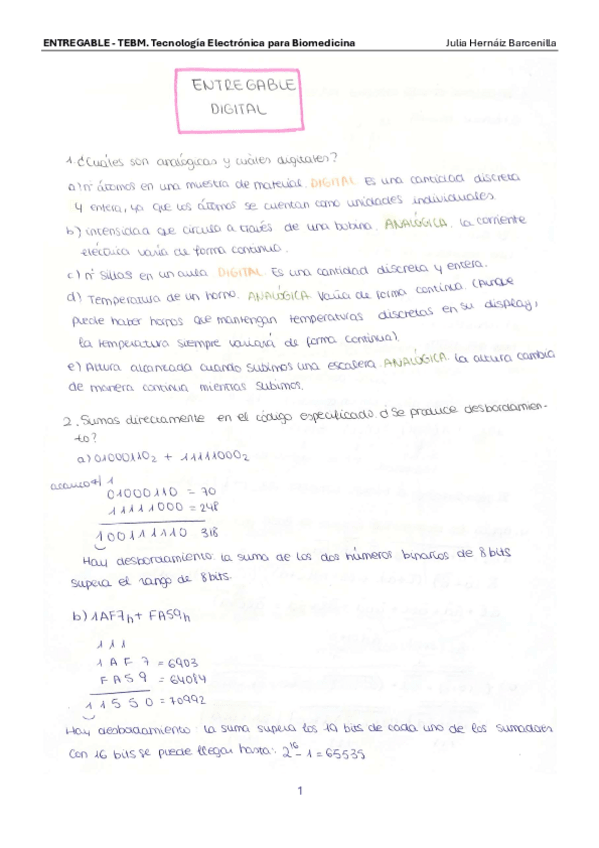 ENTREGABLE - TEBM. Tecnología Electrónica para Biomedicina Julia Hernáiz Barcenilla
ENTREGABLE
DIGITAL
1. ¿Cuáles son analógicas y cuáles digitales?
a) nº átomos en una muestra de material. DIGITAL. Es una cantidad discreta
y entera, ya que los átomos se cuentan como unidades individuales.
b) intensidad que circula a través de una bobina. ANALÓGICA. la corriente
eléctrica varía de forma continua.
c) nº sillas en un aula DIGITAL. Es una cantidad discreta y entera.
d) Temperatura de un horno. ANALÓGICA. Varía de forma continua. (Aunque
puede haber hornos que mantengan temperaturas discretas en su display,
la temperatura siempre variará de forma continua).
e) Altura alcanzada cuando subimos una escalera. ANALÓGICA. la altura cambia
de manera continua mientras subimos.
2. Sumas directamente en el código especificado. ¿Se produce desbordamien-
to?
a) 01000110₂ + 11111000₂
acarreo 1
01000110 = 70
11111000 = 248
100111110 318
Hay desbordamiento: la suma de los dos números binarios de 8 bits
supera el rango de 8 bits.
b) 1AF7h + FA59h
1 1 1
1 A F 7 = 6903
F A 5 9 = 64089
1 1 5 5 0 = 70992
Hay desbordamiento: la suma supera los bits de cada uno de los sumadores
Con 16 bits se puede llegar hasta: 2¹⁶ - 1 = 65535
1